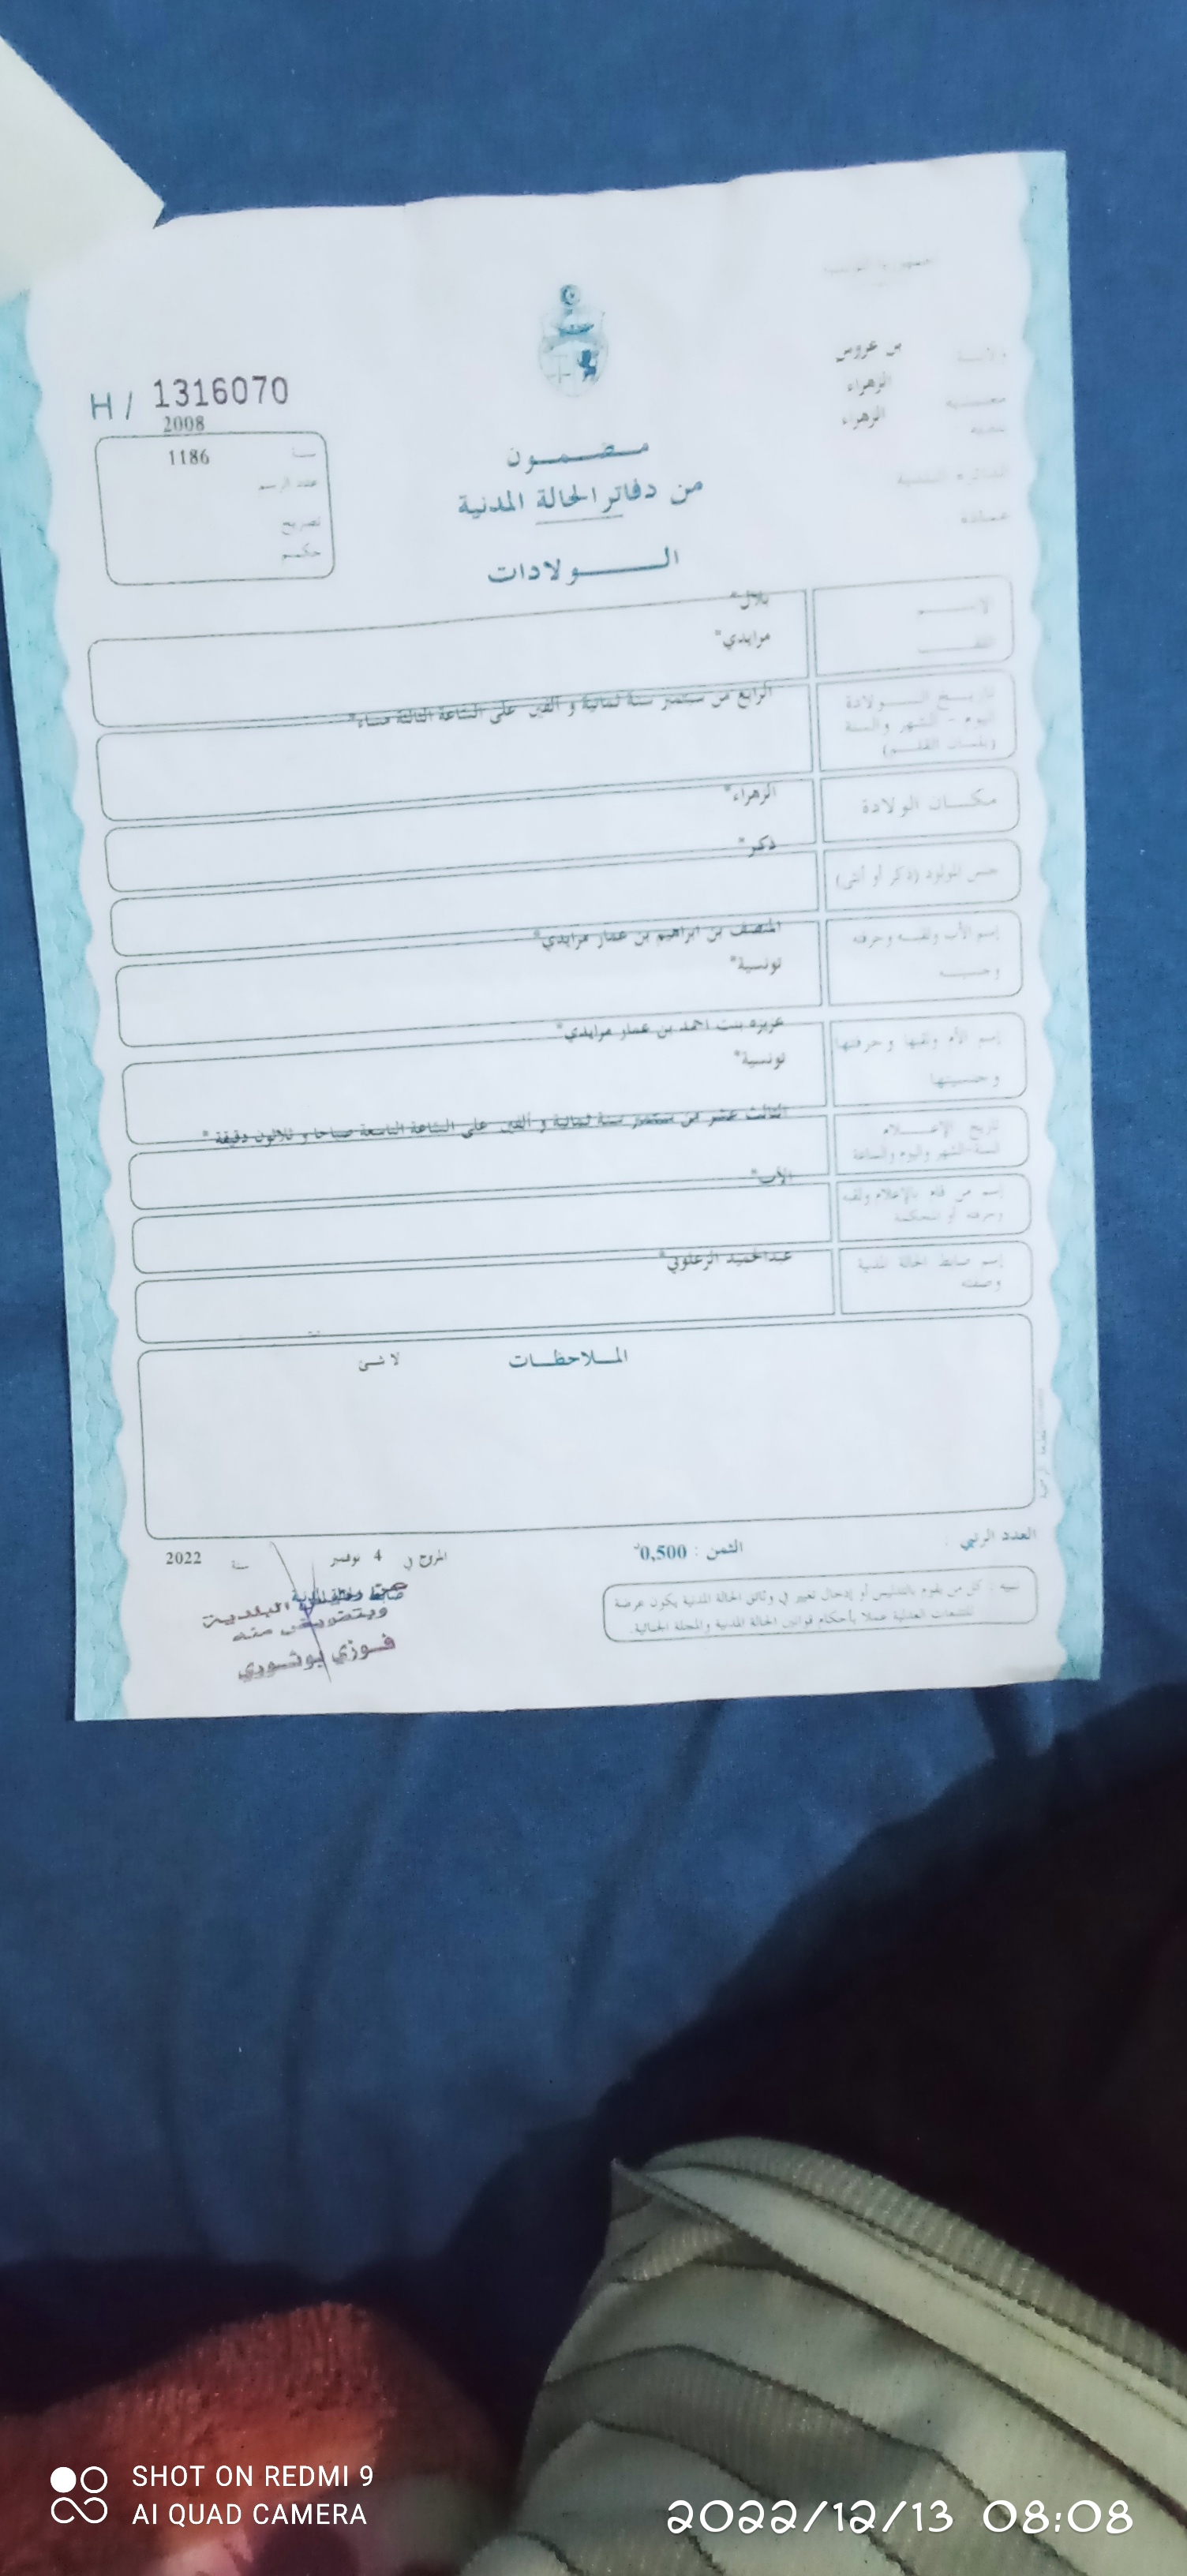 الجمهورية التونسية
ولايـة بن عروس
معتمدية الزهراء
بلدية الزهراء
الدائرة البلدية
عمادة
H / 1316070
2008
سنة 1186
عدد الرسم
تصريح
حكم
مـضـمـون
من دفاتر الحالة المدنية
الـــولادات
الاســـم بلال*
اللقـــب مرايدي*
تاريـخ الـــولادة الرابع من سبتمبر سنة ثمانية و ألفين على الساعة الثالثة مساء*
اليوم - الشهر والسنة
(بلسان القلـم)
مكـان الولادة الزهراء*
جنس المولود (ذكر أو أنثى) ذكر*
إسم الأب ولقبـه وحرفته المنصف بن ابراهيم بن عمار مرايدي*
وجنسيته تونسية*
إسم الأم ولقبها وحرفتها عزيزة بنت احمد بن عمار مرايدي*
وجنسيتها تونسية*
تاريخ الإعـــلام الثالث عشر من سبتمبر سنة ثمانية و ألفين على الساعة التاسعة صباحا و ثلاثون دقيقة *
السنة-الشهر واليوم والساعة
إسم من قام بالإعلام ولقبه الأب*
وحرفته أو المحكمة
إسم ضابط الحالة المدنية عبدالحميد الزعلوني*
وصفته
المـلاحظـات لا شئ
العدد الرتبي :
الثمن : 0,500د
4 نوفمبر سنة 2022
تنبيه : كل من يقوم بالتدليس أو إدخال تغيير في وثائق الحالة المدنية يكون عرضة
للتتبعات العدلية عملا بأحكام قوانين الحالة المدنية والمجلة الجنائية.
البلديـة
وبتفويض منه
فـوزي بوثـوري
SHOT ON REDMI 9
AI QUAD CAMERA
2022/12/13 08:08